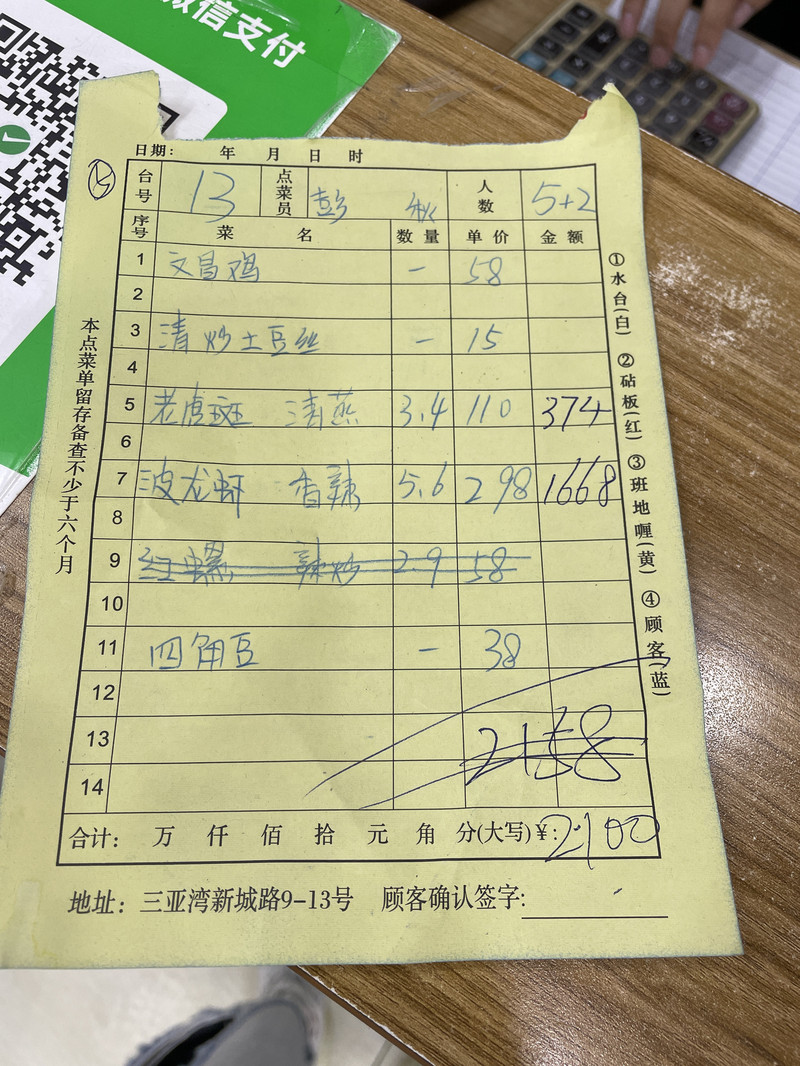 微信支付
日期: 年 月 日 时
台号 13 点菜员 彭 秋 人数 5+2
序号 菜 名 数量 单价 金额
1 文昌鸡 一 58
2
3 清炒土豆丝 一 15
4
5 老虎斑 清蒸 3.4 110 374
6
7 波龙虾 香辣 5.6 298 1668
8
9 红螺 辣炒 2.9 58
10
11 四角豆 一 38
12
13 2158
14
合计: 万 仟 佰 拾 元 角 分(大写)¥: 2100
地址: 三亚湾新城路9-13号 顾客确认签字:
本点菜单留存备查不少于六个月
①水台(白) ②砧板(红) ③班地喱(黄) ④顾客(蓝)